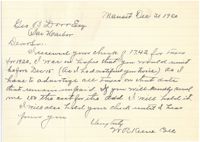 Manset Dec 21 1920
Geo B Dorr Esq
Bar Harbor
Dear Sir:
I received your check of 17.42 for taxes
for 1920, I was in hopes that you would remit
before Dec 15 (As I had notified you twice) As I
have to advertise all taxes on that date
that remain unpaid. If you will kindly send
me the cost for the Add I will hold it.
I will also hold your check until I hear
from you
Very truly